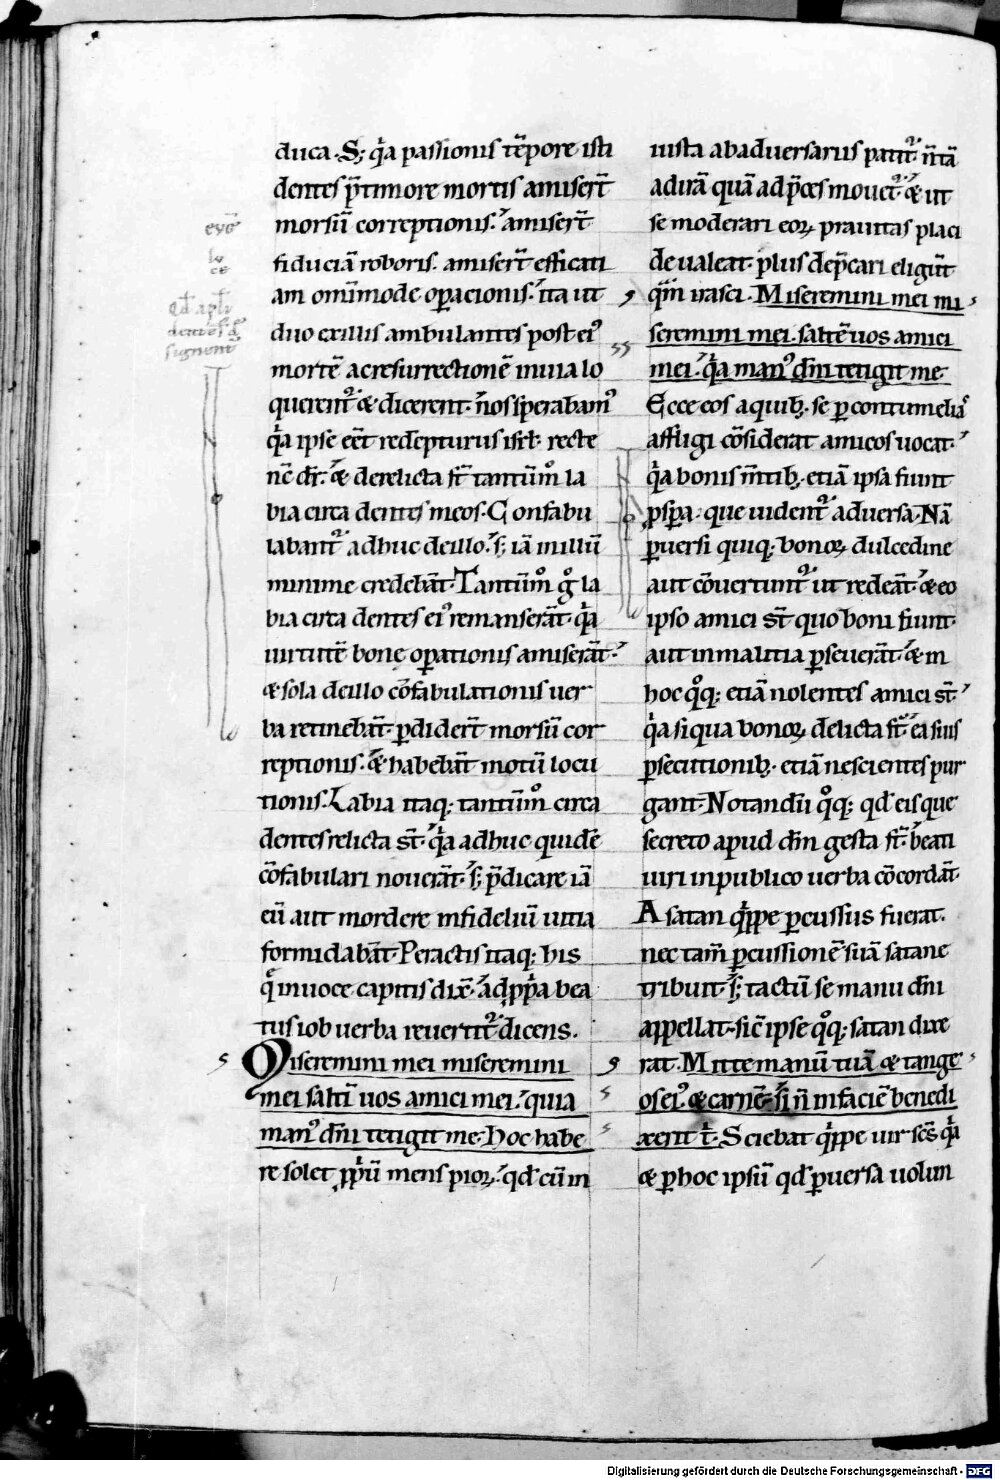 duca. S; q̇a passionis tēpore isti
dentes p̄ timore mortis amiser̄t
morsū correptionis. amiser̄t
fiduciā roboris. amiser̄t efficati
am omīmode op̲acionis. ita ut
duo ex illis ambulantes post ei᷒
mortē ac resurrectionē in uia lo
querent᷒ & dicerent. n̄os sperabam᷒
q̇a ipse eēt redēpturus isrl̄. recte
nc̄ dr̄. & derelicta st̄ tantūm̊ la
bia circa dentes meos. Confabu
labant᷒ adhuc de illo. s; iā in illū
minime credebāt. Tantūm̊ g̊ la
bia circa dentes ei᷒ remanserāt. q̇a
uirtutē bonę op̲ationis amiserāt.
& sola de illo cōfabulationis uer
ba retinebāt. p̲didert̄ morsū cor
reptionis. & habebāt motū locu
tionis. Labia itaq; tantūm̊ circa
dentes relicta st̄. q̇a adhuc quidē
cōfabulari nouerāt. s; p̄dicare iā
eū aut mordere infideliū uitia
formidabāt. Peractis itaq; his
q̄ in uoce capitis dix̄. ad pṗa bea
tus iob uerba reuertit᷒ dicens.
Miseremini mei miseremini
mei saltī uos amici mei. quia
man᷒ dn̄i tetigit me. Hoc habe
re solet pṗū mens pioꝝ. qd̄ cū in
iusta ab aduersariis patit᷒. n̄ tā
ad irā quā ad p̄ces mouet᷒. & ut
se moderari eoꝝ prauitas placi
de ualeat. plus dep̄cari eligūt
q̄m irasci. Miseremini mei mi
seremini mei. saltē uos amici
mei. q̇a man᷒ dn̄i tetigit me.
Ecce eos a quib; se p̲ contumeliā
affligi cōsiderat amicos uocat.
q̇a bonis m̄tib; etiā ipsa fiunt
p̲sp̲a. que uident᷒ aduersa. Nā
p̲uersi quiq; bonoꝝ dulcedine
aut cōuertunt᷒ ut redeāt. & eo
ipso amici st̄ quo boni fiunt.
aut in malitia p̲seuerāt. & in
hoc q̊q; etiā nolentes amici st̄.
q̇a siqua bonoꝝ delicta st̄. ea suis
p̲secutionib; etiā nescientes pur
gant. Notandū q̊q; qd̄ eis que
secreto apud dm̄ gesta st̄. beati
uiri in publico uerba cōcordāt.
A satan q̇ppe p̲cussus fuerat.
nec tam̄ p̲cussionē suā satane
tribuit. s; tactū se manu dn̄i
appellat. sic̄ ipse q̊q; satan dixe
rat. Mitte manū tuā & tange
os ei᷒ & carnē. si n̄ in faciē benedi
xerit t̄. Sciebat q̇ppe uir sc̄s q̇a
& p̲ hoc ipsū qd̄ p̲uersa uolun
Digitalisierung gefördert durch die Deutsche Forschungsgemeinschaft - DFG